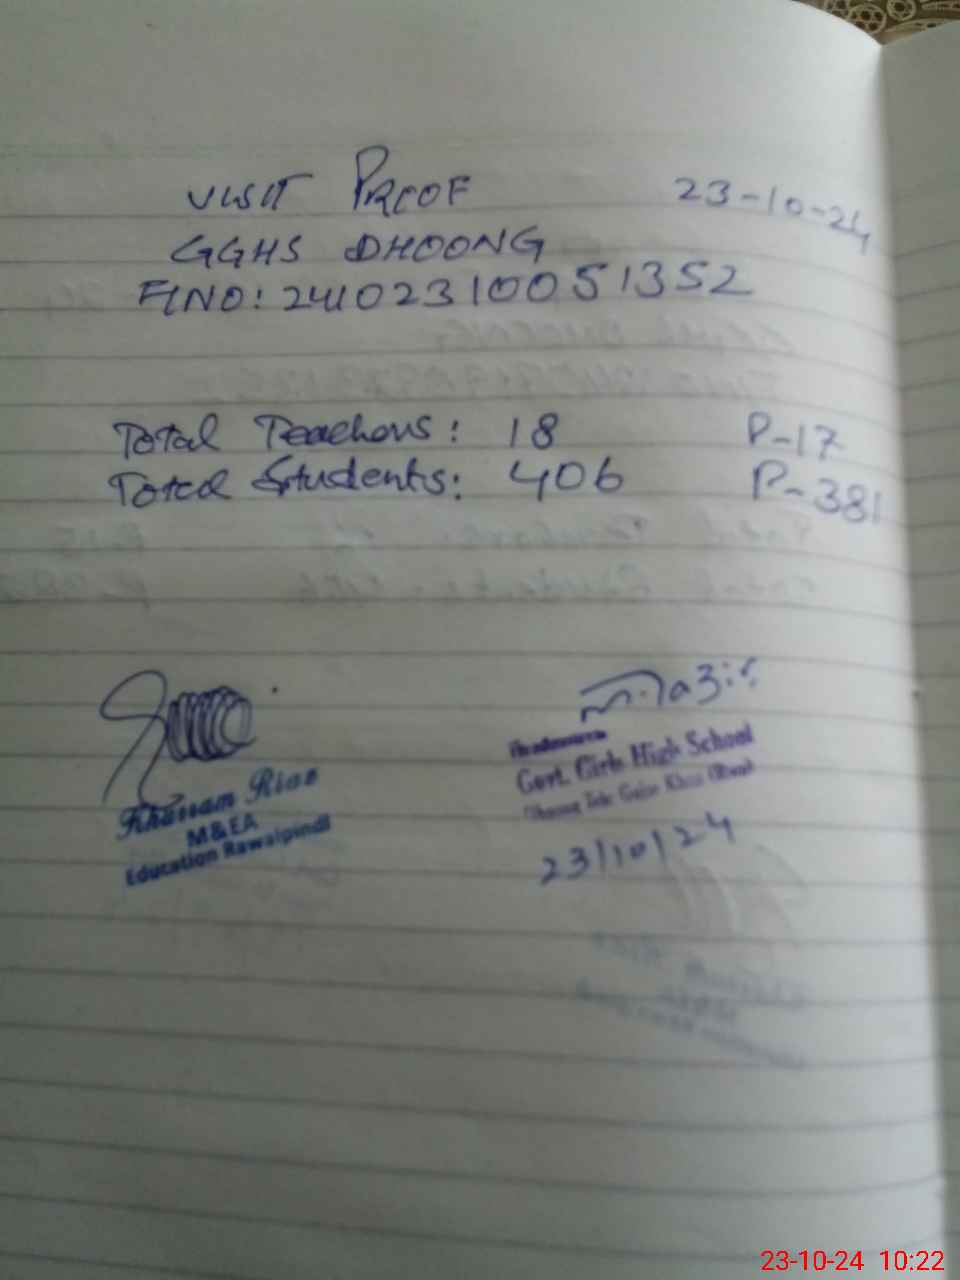 VISIT PROOF 23-10-24
GGHS DHOONG
FINO: 2410231005 1352
Total Teachers: 18 P-17
Total Students: 406 P-381
Khurram Riaz
M&EA
Education Rawalpindi
Headmistress
Govt. Girls High School
Dhoong Teh: Gujar Khan (Rwp)
23/10/24
23-10-24 10:22